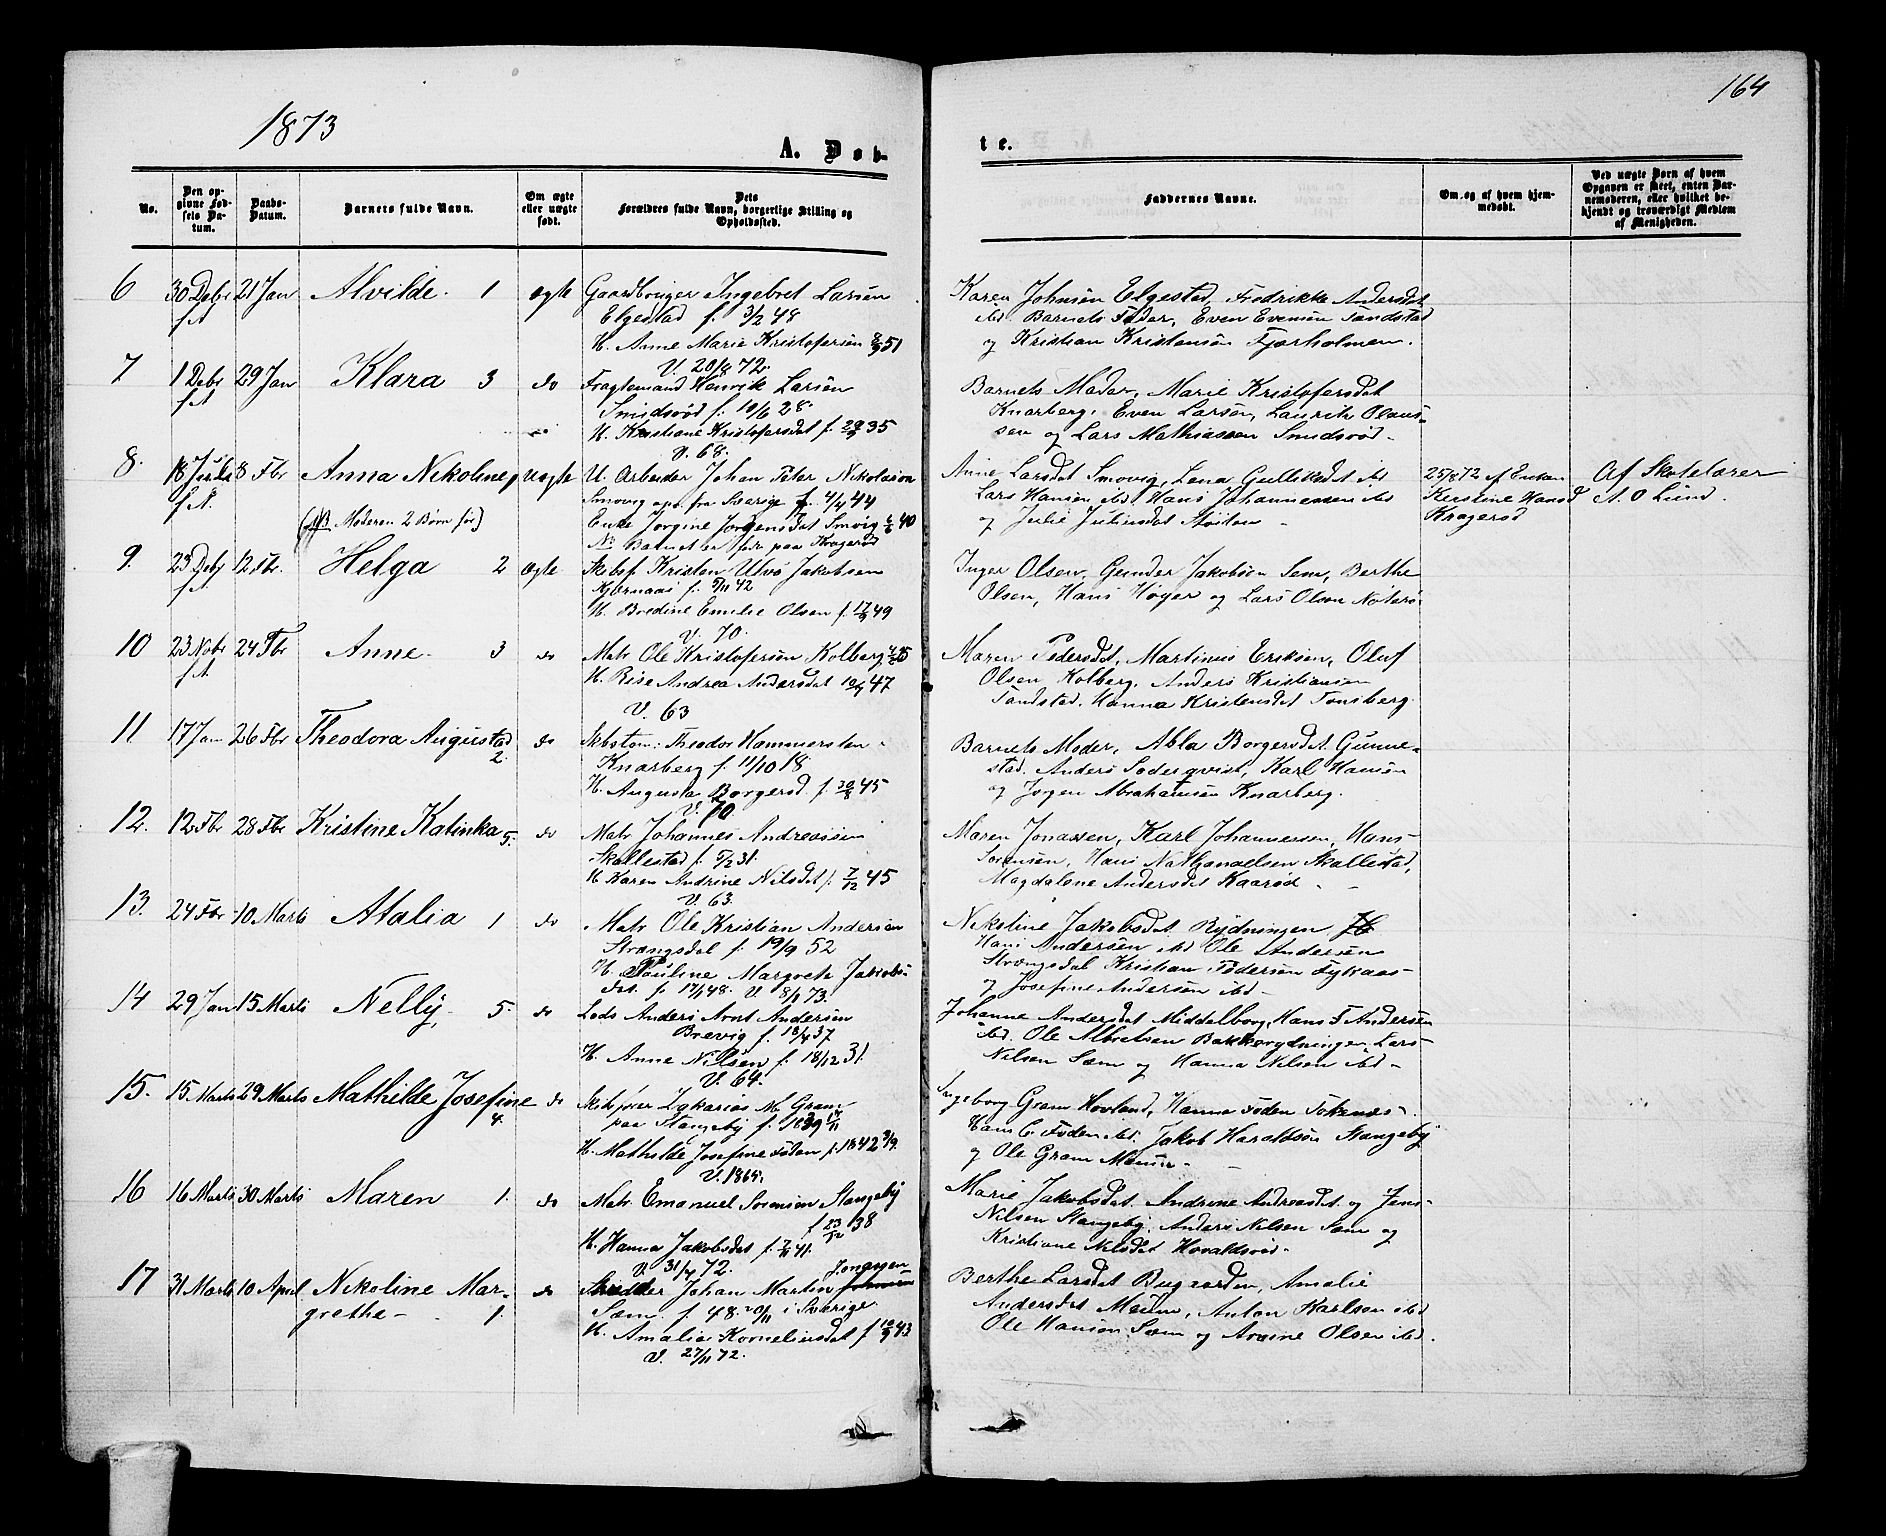 1873
164
A. Døb-
te.
No.
Den op-
givne Fød-
sels Da-
tum.
Daabs-
Datum.
Barnets fulde Navn.
Om ægte
eller uægte
født.
Dets
Forældres fulde Navn, borgerlige Stilling og
Opholdssted.
Faddernes Navne.
Om og af hvem hjem-
medøbt.
Ved uægte Børn af hvem
Opgaven er skeet, enten Bar-
nemoderen, eller hvilket be-
kjendt og troværdigt Medlem
af Menigheden.
6 30 Debr 21 Jan Alvilde. 1 ægte
f A
Gaardbruger Ingebret Larsen
Elgestad f. 3/2 48
H. Anne Marie Kristofersen 51
V. 20/8 72.
Karen Johnsen Elgestad, Fredrikke Andersdat
ibd. Barnets Fader, Even Evensen Tandstad
og Kristian Kristensen Fjærholmen.
7 1 Debr 29 Jan Klara 3 do
f A
Fragtemand Henrik Larsen
Smidsrød f. 10/6 28.
H. Kristiane Kristofersdat f. 35
V. 68.
Barnets Moder, Marie Kristofersdat
Knarberg, Even Larsen, Laurits Olaus-
sen og Lars Mathiassen Smidsrød.
8. 18 Juli 8 Fbr Anna Nikoline, uægte
f A.
(Moderen 2 Børn før)
U. Arbeider Johan Peter Nikolaison
Smovig fra Sverige f. 4/4 44
Enke Jørgine Jørgensdat Smvig 40
NB Barnet er født paa Kragerød
Anne Larsdat Smovig, Lena Gulliksdat ibd
Lars Hansen ibd, Hans Johannessen ibd
og Julie Juliusdat Støiten
25/8 72 af Enken
Kerstine Hansd
Kragerød
Af Skolelærer
A. O Lund.
9. 23 Debr 12 Fbr. Helga 2 ægte
f A.
Skibsf. Kristen Ulvø Jakobsen
Kjærnaas f. 5/11 42
H. Bredine Emilie Olsen f. 49
V. 70.
Inger Olsen, Gunder Jakobsen Sem, Berthe
Olsen, Hans Høyer og Lars Olsen Noterø
10 23 Nobr 24 Fbr Anne. 3 do
f A.
Matr Ole Kristofersen Kolberg 35
H. Rese Andrea Andersdat 47
V. 63
Maren Pedersdat, Martinus Eriksen, Oluf
Olsen Kolberg, Anders Kristiansen
Tandstad, Hanna Kristensdat Tønsberg.
11 17 Jan 26 Fbr Theodora Augusta do
2.
Skbstøm: Theodor Hammersten
Knarberg f. 11/10 18.
H. Augusta Borgersd. f. 45
V. 70
Barnets Moder, Abla Borgersdat Gunne-
stad, Anders Soderqvist, Karl Hansen
og Jørgen Abrahamsen Knarberg.
12. 12 Fbr 28 Fbr Kristine Katinka 5. do
Matr Johannes Andreassen
Skallestad f. 5/2 31.
H. Karen Andrine Nilsdat f. 7/12 45
V. 63.
Maren Jonassen, Karl Johannessen, Hans
Sørensen, Hans Nathanaelsen Skallestad,
Magdalene Andersdat Kaarød
13. 24 Fbr 10 Marts Atalia 1 do
Matr Ole Kristian Andersen
Strængsdal f. 19/9 52
H. Pauline Margrete Jakobs-
dat. f. 17/1 48. V. 8/1 73.
Nikoline Jakobsdat Rydningen
Hans Andersen ibd Ole Andersen
Strængsdal Kristian Pedersen Fykaas
og Josefine Andersen ibd
14 29 Jan 15 Marts Nelly. 5. do
Lods Anders Arnt Andersen
Brevig f. 18/4 37
H. Anne Nilsen f. 18/12 31.
V. 64.
Johanne Andersdat Middelborg, Hans F Andersen
ibd. Ole Albretsen Bakkerydningen Lars
Nilsen Sæm og Hanna Nilsen ibd
15. 15 Marts 29 Marts Mathilde Josefine do
4.
Skibsfører Zakarias M. Gram
paa Stangeby f. 1839
H. Mathilde Josefine Føden f. 1842 3/9.
V. 1865.
Ingeborg Gram Hovland, Hanna Føden Tokenæs
Hans C. Føden ibd. Jakob Haraldsen Stangeby
og Ole Gram Meum
16 16 Marts 30 Marts Maren 1. do
Matr Emanuel Sørensen Stangeby
f 23/12 38
H. Hanna Jakobsdat f. 41.
V. 31/ 72.
Marie Jakobsdat Andrine Andreasdat og Jens
Nilsen Stangeby, Anders Nilsen Sem og
Kristiane Nilsdat Hovaldsrød.
17 31 Marts 10 April Nikoline Mar- do
grethe 1.
Jonassen
Skrædder Johan Martin
Sæm. f. 48. 20/11 i Sverige
H. Amalie Korneliusdat f 43
V. 27/11 72.
Berthe Larsdat Bugaarden, Amalie
Andersdat Meum, Anton Karlsen ibd
Ole Hansen Sæm og Arine Olsen ibd.